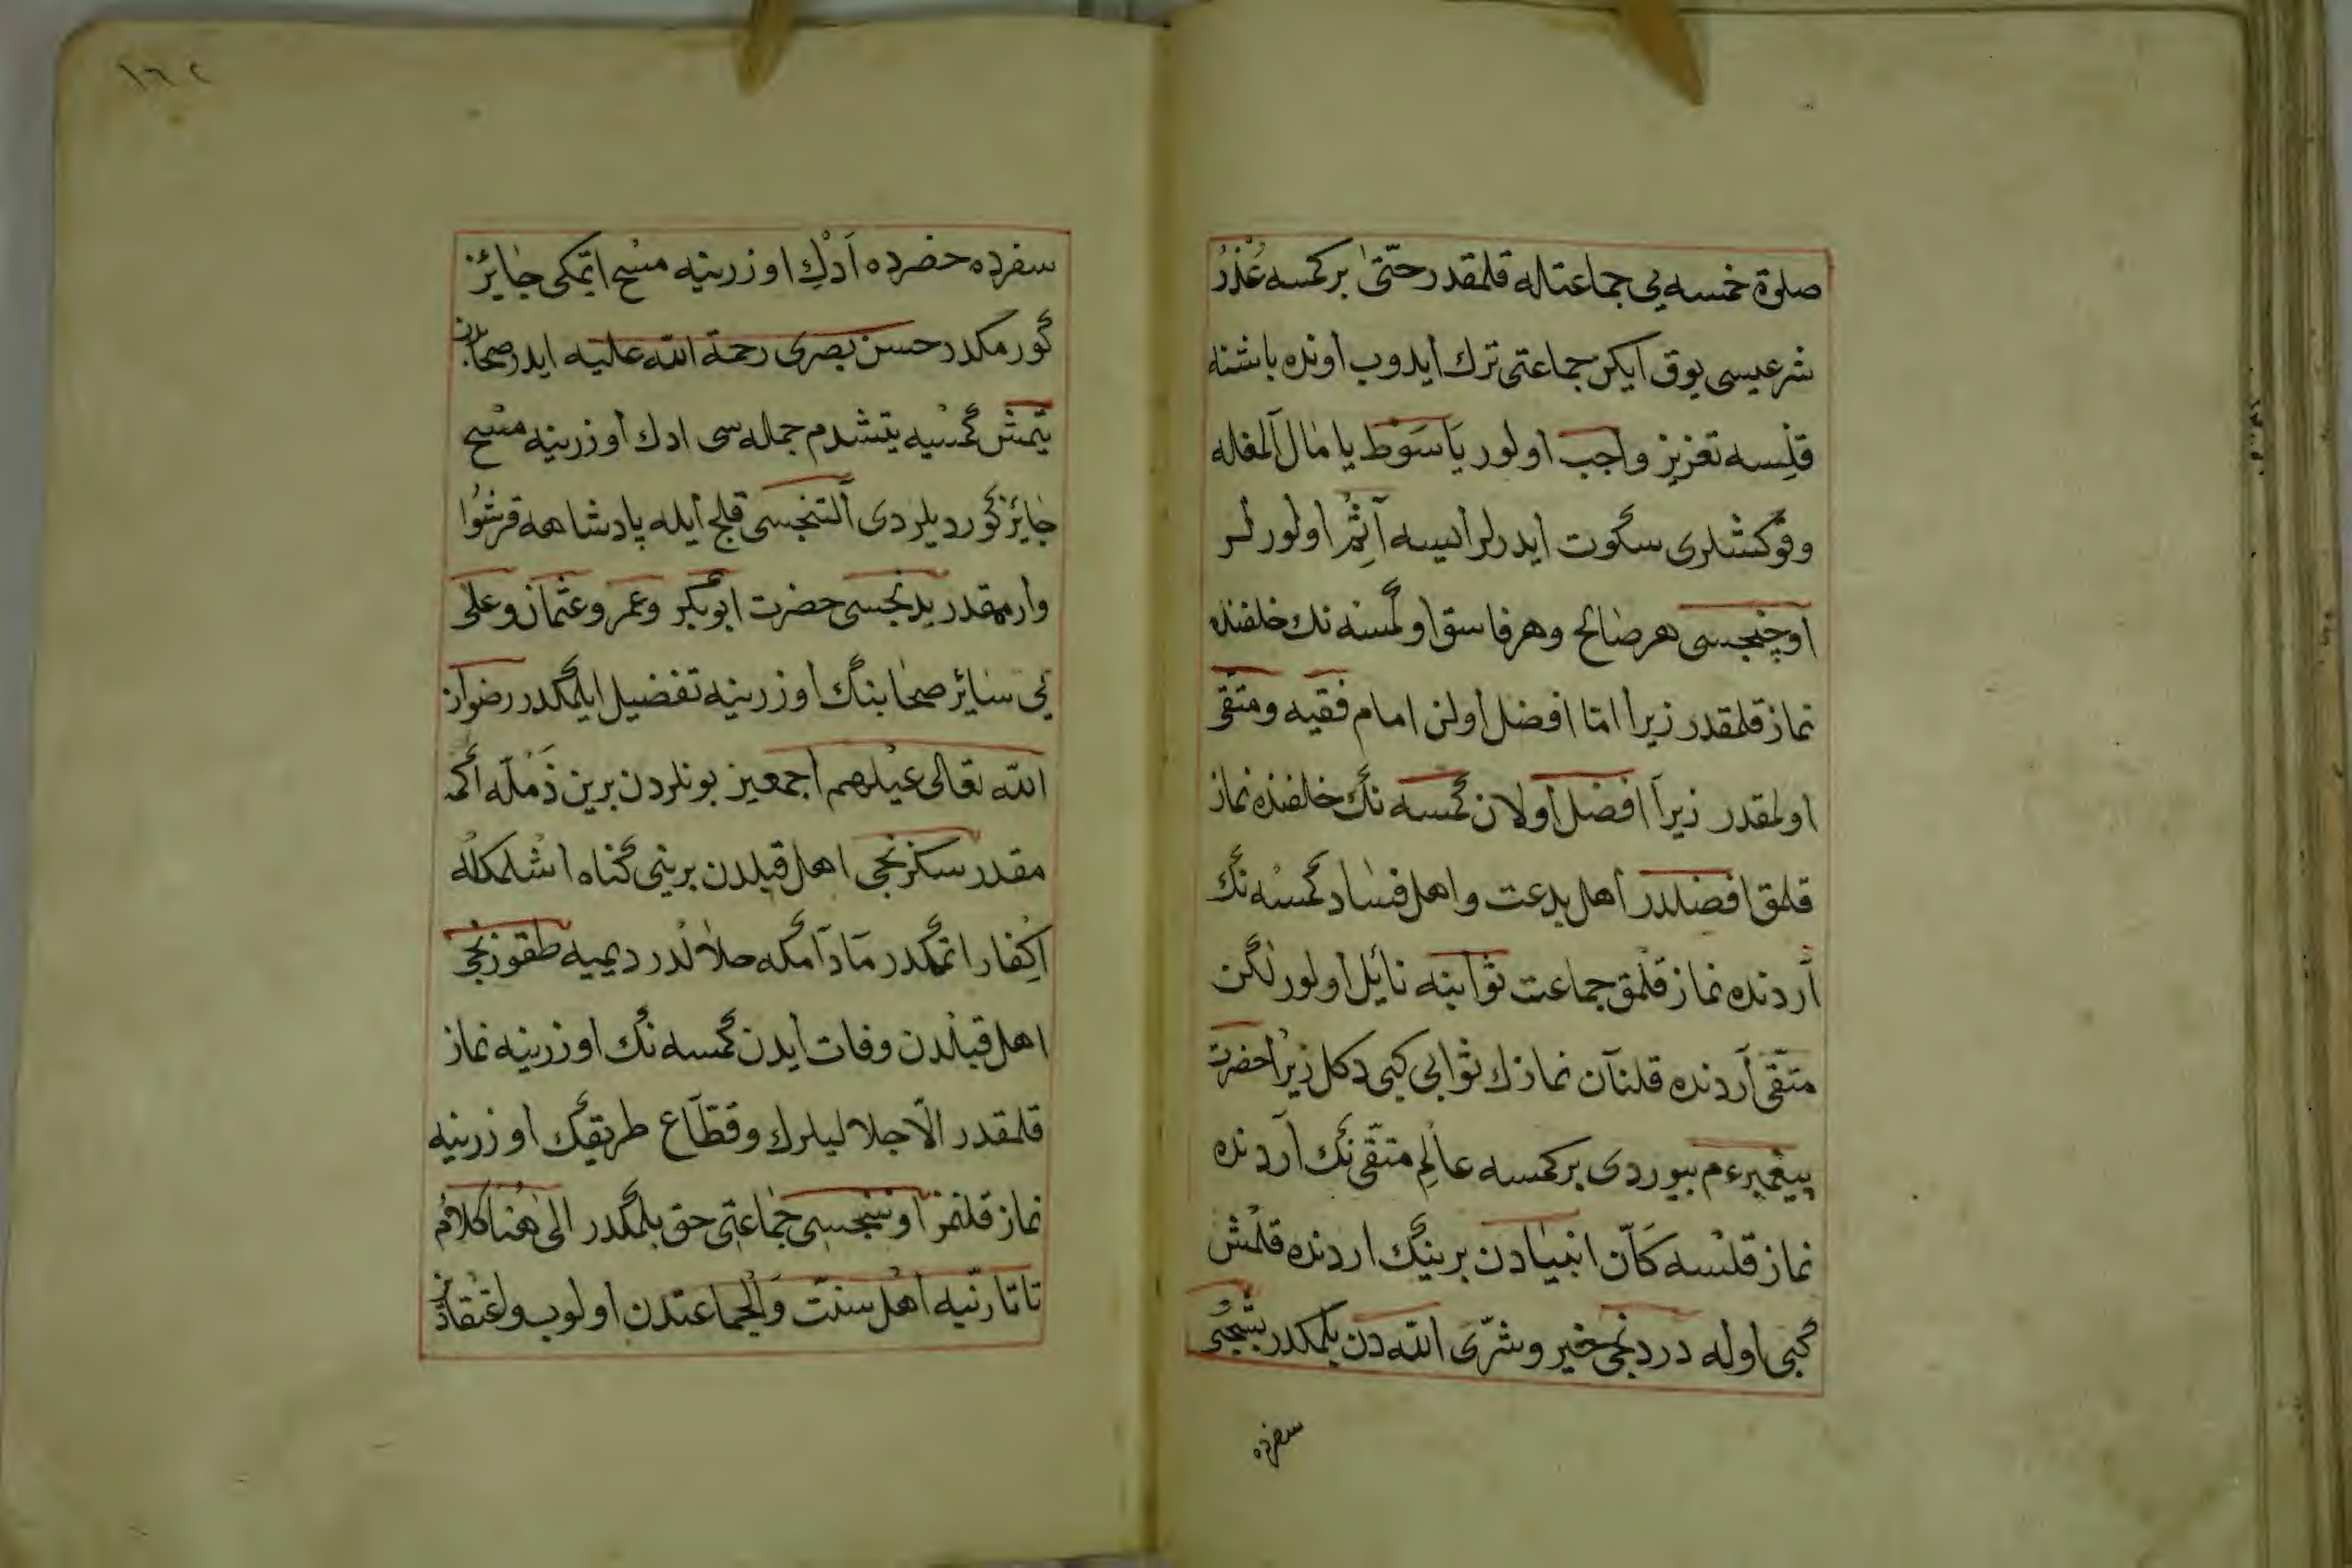 صلوة خمسه يى جماعتاله قلمقدر حتّى بر كمسه عُذْرُ
شرعيسى يوق ايكن جماعتى ترك ايدوب اونده باشنه
قلِسه تعزيز واجب اولور يَا سَوْط يا مال آلمغله
وقوكشلرى سكوت ايدرلر ايسه آثِمْ اولورلر
اوچنجسى هر صالح وهر فاسق اولمسنه نك خلفنده
نماز قلمقدر زيرا امّا افضل اولن امام فقيه ومتّقى
اولمقدر زيرا افضل اولان كمسه نك خلفنده نماز
قلمق افضلدر اهل بدعت واهل فساد كمسه نك
آردنده نماز قلمق جماعت ثوابنه نائل اولور لكن
متّقى آردنده قلنان نمازك ثوابى كبى دكل زيرا حضرت
پيغمبر ءم بيوردى بر كمسه عالِم متّقى نك آردنده
نماز قلسه كَاَنّ انبيادن برينك اردنده قلمش
كبى اوله دردنجى خير وشرّى الله دن بلمكدر بشنجى
سفرده
١٦٢
سفرده حضرده اَدك اوزرينه مسْح ايتمكى جائز
كورمكدر حسن بصرى رحمة الله عليه ايدر صحابه‌دن
يتمش كمسيه يتشدم جمله سى ادك اوزرينه مسْح
جائز كورديلردى آلتنجسى قلج ايله پادشاهه قرشو
وارمقدر يدنجسى حضرت ابو بكر وعمر وعثمان وعلى
يى سائر صحابنك اوزرينه تفضيل ايلمكدر رضوان
الله تعالى عيلهم اجمعين بونلردن برين ذَمْلَه اكمه
مقدر سكزنجى اهل قبلدن برينى كناه اشلمكله
اِكْفار اتمكدر مَادَامكه حلالدر ديميه طقوزنجى
اهل قبلدن وفات ايدن كمسه نك اوزرينه نماز
قلمقدر الّا جلاليلرك وقطّاع طريقك اوزرينه
نماز قلنمز اوننجسى جماعتى حق بلمكدر الى هُنا كلامُ
تاتارنيه اهل سنّت والجماعتدن اولوب واعْتقادْ